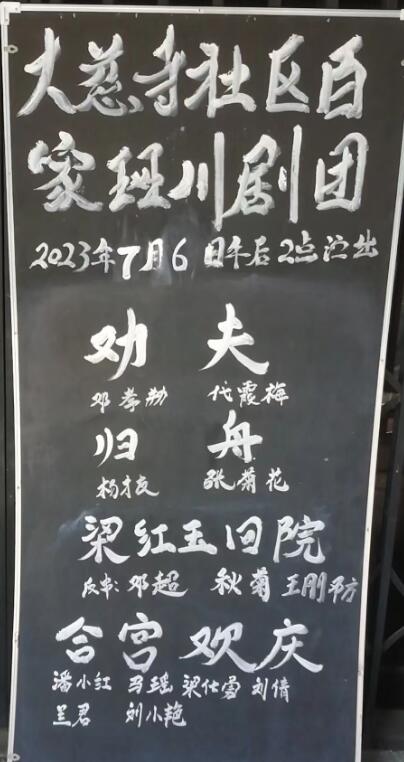 大慈寺社区百
家班川剧团
2023年7月6日午后2点演出
劝 夫
邓孝勤 代霞梅
归 舟
杨才友 张菊花
梁红玉回院
反串:邓超 秋菊 王刚 平方
合宫欢庆
潘小红 马瑶 梁仕雪 刘倩
兰君 刘小艳